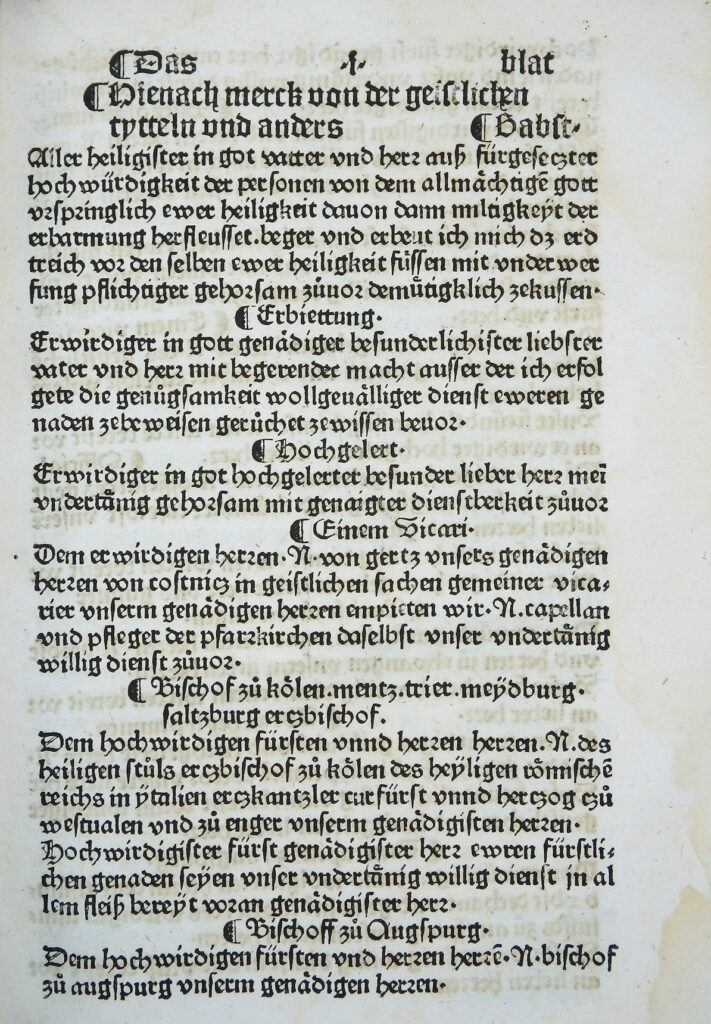 ¶Das ·1· blat
¶Hienach merck von der geistlichen
tytteln vnd anders ¶Babst·
Aller heiligister in got vatter vnd herr auß fürgeseczter
hochwürdigkeit der personen von dem allmächtigē gott
vrspringlich ewer heiligkeit dauon dann miltigkeyt der
erbarmung herfleusset. beger vnd erbeut ich mich dz erd
treich vor den selben ewer heiligkeit füssen mit vnderwer
fung pflichtiger gehorsam zůuor demuͤtigklich zekussen·
¶Erbiettung·
Erwirdiger in gott genädiger besunderlichister liebster
vater vnd herr mit begerender macht ausser der ich erfol
gete die genůgsamkeit wollgeuälliger dienst eweren ge
naden zebeweisen gerůchet zewissen beuor·
¶Hochgelert·
Erwirdiger in got hochgelerter besunder lieber herr meī
vndertänig gehorsam mit genaigter dienstberkeit zůuor
¶Einem Vicari·
Dem erwirdigen herren·N·von gertz vnsers genädigen
herren von costnicz in geistlichen sachen gemeiner vica-
rier vnserm genädigen herren empieten wir·N.capellan
vnd pfleger der pfarrkirchen daselbst vnser vndertänig
willig dienst zůuor·
¶Bischof zů kölen.mentz.trier.meydburg·
saltzburg erczbischof.
Dem hochwirdigen fürsten vnnd herren herren.N.des
heiligen stůls erczbischof zů kölen des heyligen römischē
reichs in ytalien erczkantzler curfürst vnnd herczog czů
westualen vnd zů enger vnserm genädigisten herren·
Hochwirdigister fürst genädigister herr ewren fürstli-
chen genaden seyen vnser vndertänig willig dienst in al
lem fleiß bereyt voran genädigister herr·
¶Bischoff zů Augspurg·
Dem hochwirdigen fürsten vnd herren herrē·N·bischof
zů augspurg vnserm genädigen herren·